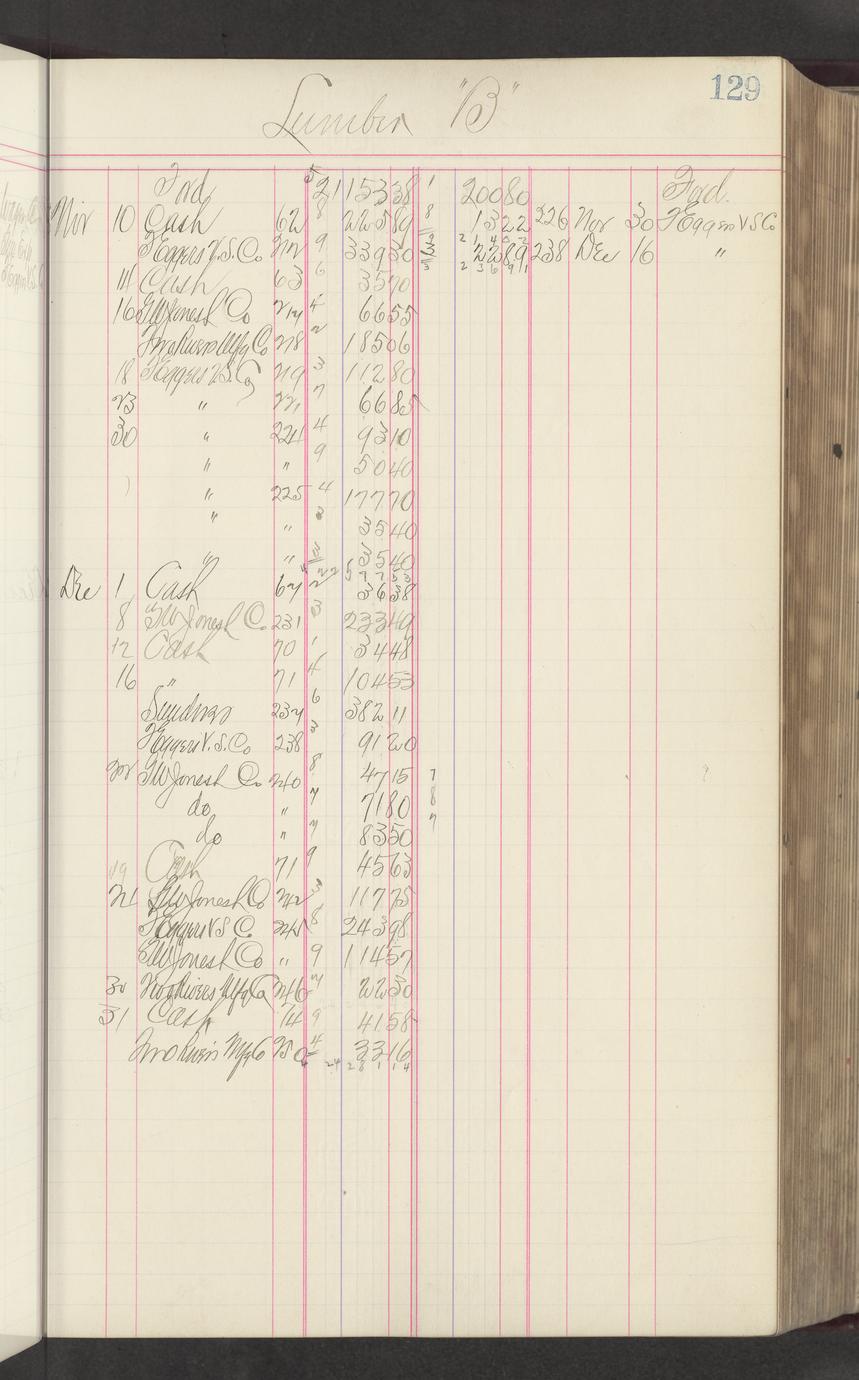 129
Lumber "B"
Ford 5 21 1 15338 1 20080 Ford.
Nov 10 Cash 62 8 22589 8 1322 226 Nov 30 F Eggers V S Co
F Eggers V. S. Co 212 9 33930 2289 238 Dec 16 "
14 Cash 63 6 3570
16 GW Jones L Co 214 4 6655
Two Rivers Mfg Co 218 2 18506
18 F Eggers V. S. Co 219 3 11280
23 " 221 7 6685
30 " 224 4 9310
" " 9 5040
" 225 4 17770
" " 3 3540
" " 3 3540
Dec 1 Cash 67 2 3638
8 GW Jones L Co. 231 3 23349
12 Cash 70 1 3448
16 " 71 4 10453
Sundries 234 6 38211
F Eggers V. S. Co 238 3 9120
GW Jones L Co 240 8 4715 7
do " 7 7180 8
do " 7 8350 7
19 Cash 71 9 4563
21 GW Jones L Co 242 3 11775
F Eggers V S Co. 245 8 24398
GW Jones L Co " 9 11457
30 Two Rivers Mfg Co 246 7 2230
31 Cash 74 9 4158
Two Rivers Mfg Co 250 4 3316
24 2 8 1 1 4